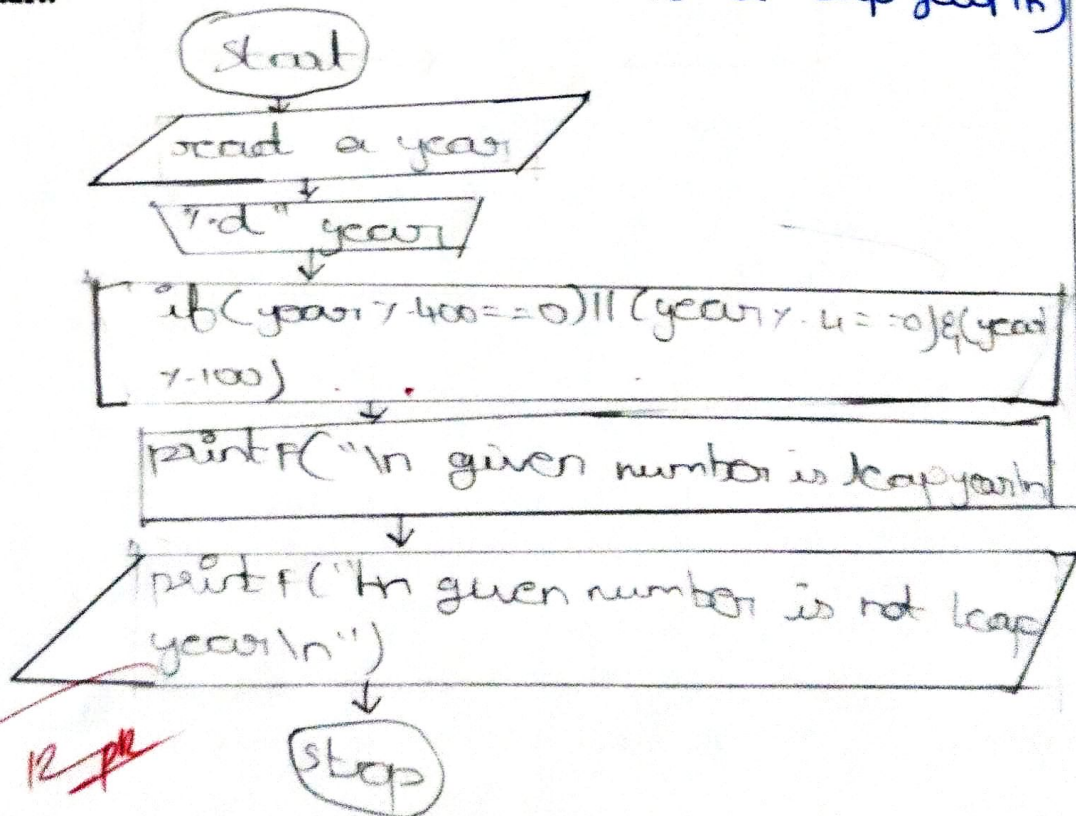 year\n)
Start
read a year
"%d" year
if(year %400==0)||(year%4==0)&(year
%100)
printf("\n given number is leapyear\n
printf("\n given number is not leap
year\n")
stop